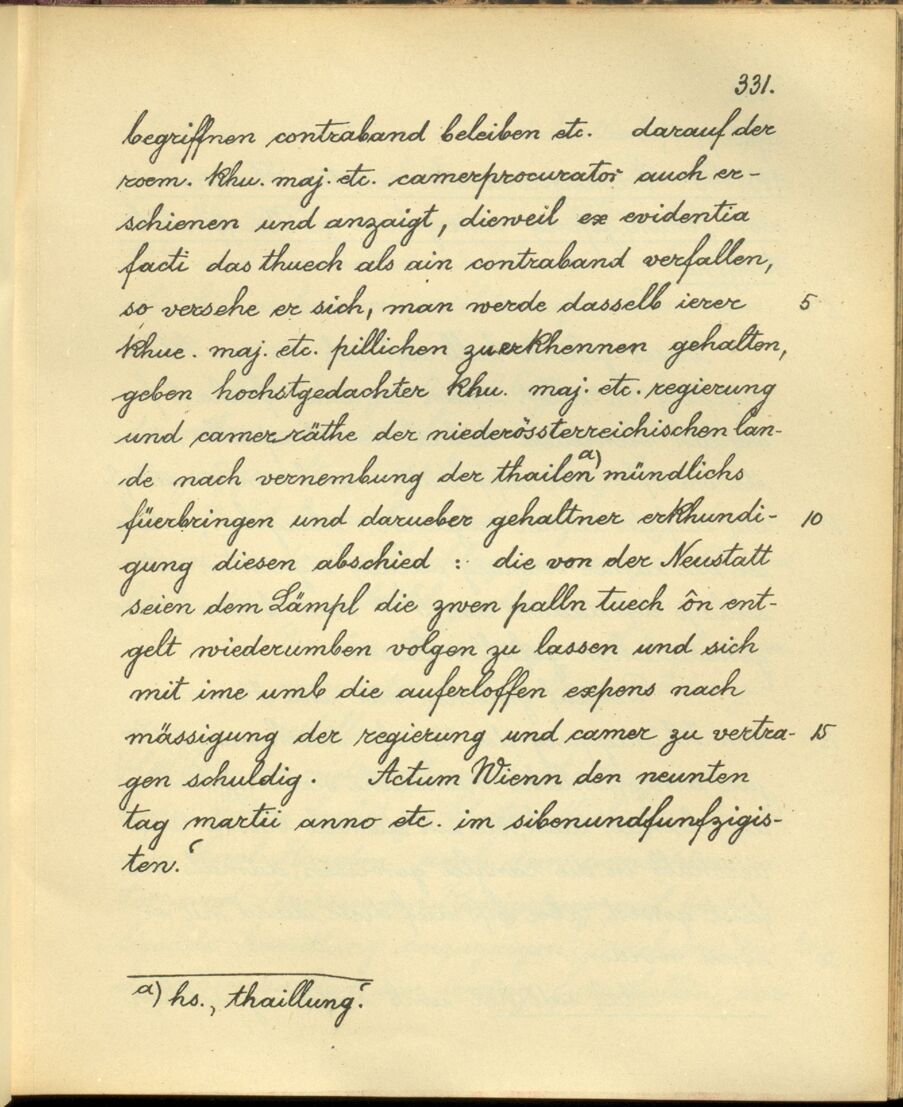 331.
begriffnen contraband beleiben etc. darauf der
roem. khu. maj. etc. camerprocurator auch er-
schienen und anzaigt, dieweil ex evidentia
facti das thuech als ain contraband verfallen,
so versehe er sich, man werde dasselb ierer 5
khue. maj. etc. pillichen zuerkhennen gehalten,
geben hochstgedachter khu. maj. etc. regierung
und camerräthe der niederössterreichischen lan-
de nach vernembung der thailen a) mündlichs
füerbringen und darueber gehaltner erkhundi- 10
gung diesen abschied : die von der Neustatt
seien dem Lämpl die zwen palln tuech ôn ent-
gelt wiederumben volgen zu lassen und sich
mit ime umb die auferloffen expens nach
mässigung der regierung und camer zu vertra- 15
gen schuldig. Actum Wienn den neunten
tag martii anno etc. im sibenundfunfzigis-
ten.‘
a) hs. ‚thaillung.‘